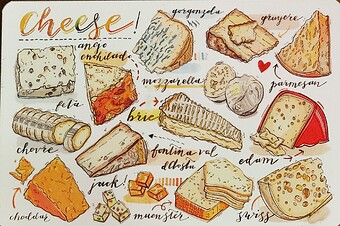 cheese!
gorgonzola
gruyere
anejo
enchilado
mozzarella
parmesan
feta
brie
chevre
fontina val
d'Aosta
edam
jack!
cheddar
muenster
swiss